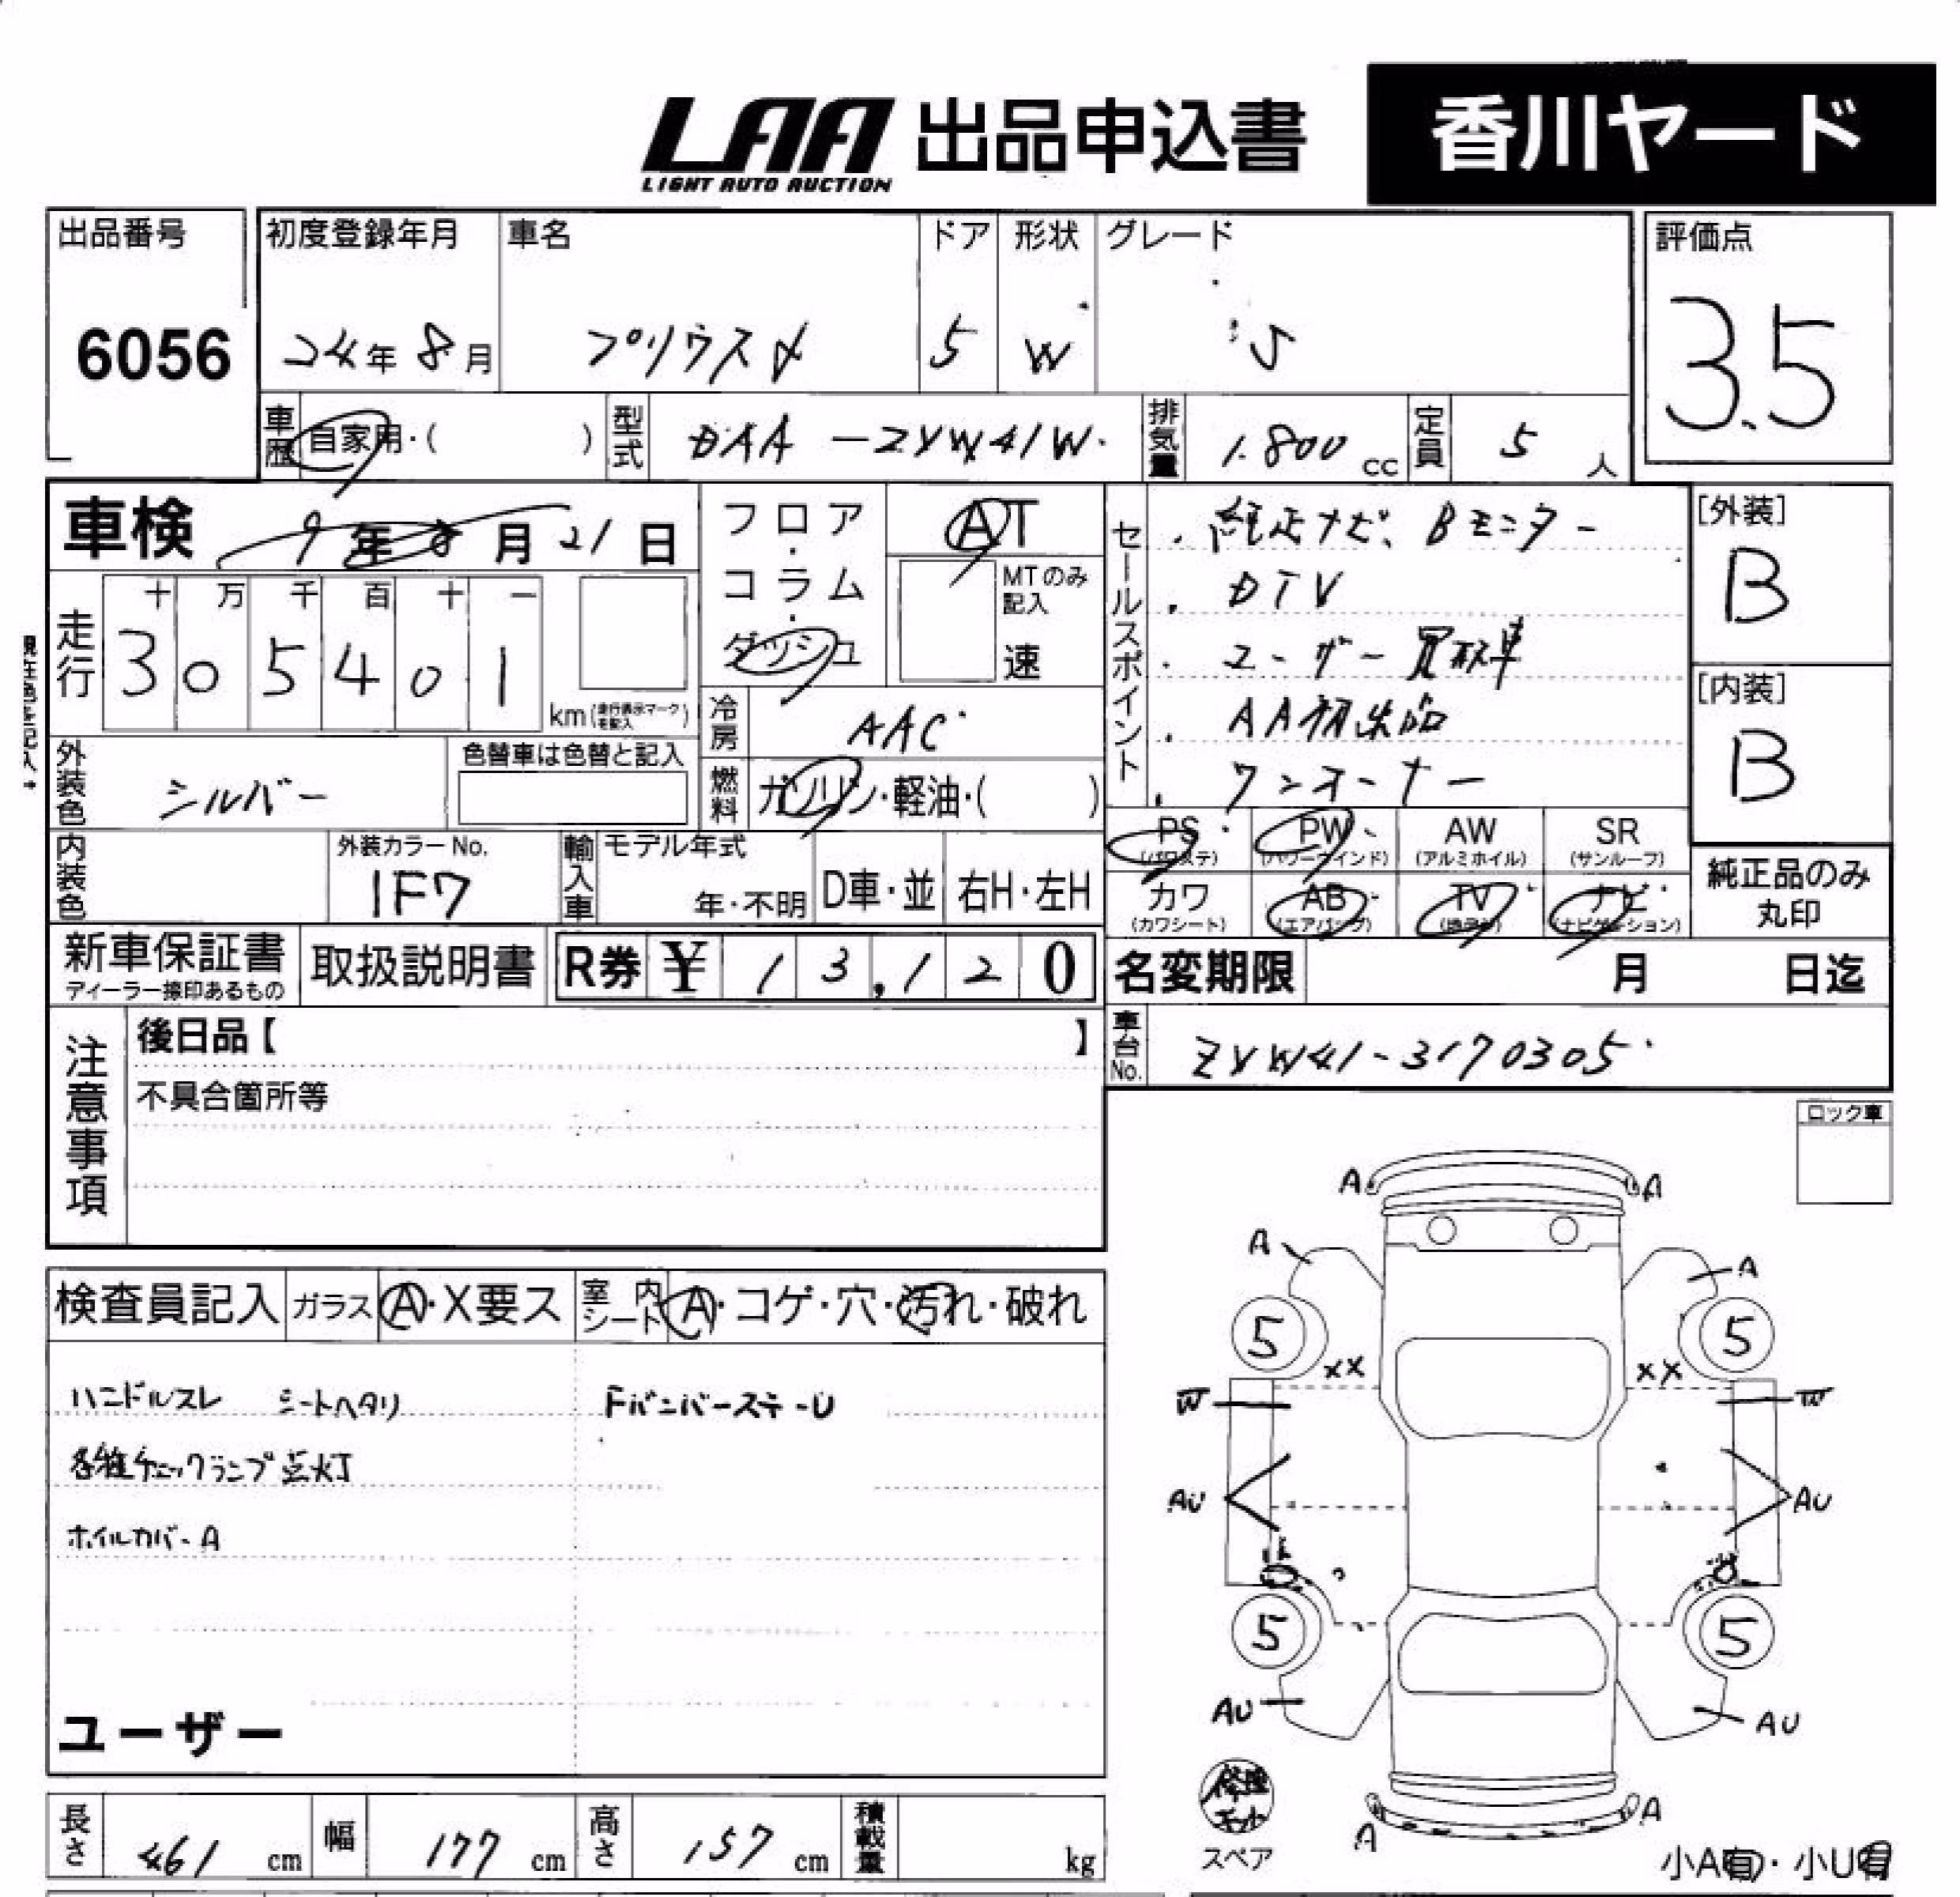 LAA 出品申込書 香川ヤード
LIGHT AUTO AUCTION
出品番号 初度登録年月 車名 ドア 形状 グレード 評価点
6056 24年8月 プリウスα 5 W S 3.5
車歴 自家用・( ) 型式 DAA-ZVW41W 排気量 1.800 cc 定員 5 人
車検 9年8月21日
フロア・コラム・ダッシュ
AT
MTのみ記入
速
走行 十 万 千 百 十 一
3 0 5 4 0 1 km (走行表示マークを記入)
現在色を記入→
冷房 AAC
外装色 シルバー 色替車は色替と記入
燃料 ガソリン・軽油・( )
内装色 外装カラーNo. 1F7 輸入車 モデル年式 年・不明 D車・並 右H・左H
セールスポイント
・純正ナビ、Bモニター
・DTV
・ユーザー買取車
・AA初出品
・ワンオーナー
[外装]
B
[内装]
B
PS PW AW SR
(パワステ) (パワーウインド) (アルミホイル) (サンルーフ)
カワ AB TV ナビ
(カワシート) (エアバッグ) (地デジ) (ナビゲーション)
純正品のみ
丸印
新車保証書 取扱説明書 R券 ¥ 1 3,1 2 0 名変期限 月 日迄
ディーラー捺印あるもの
車台No. ZVW41-3170305
注意事項
後日品【 】
不具合箇所等
ロック車
検査員記入 ガラス A・X要ス 室内シート A・コゲ・穴・汚れ・破れ
ハンドルスレ シートヘタリ FバンパーステーU
各種チェックランプ点灯
ホイルカバーA
ユーザー
A A
A A
5 5
XX XX
W W
AU AU
5 5
AU AU
A A
修理キット
スペア
小A有・小U有
長さ 461 cm 幅 177 cm 高さ 157 cm 積載量 kg